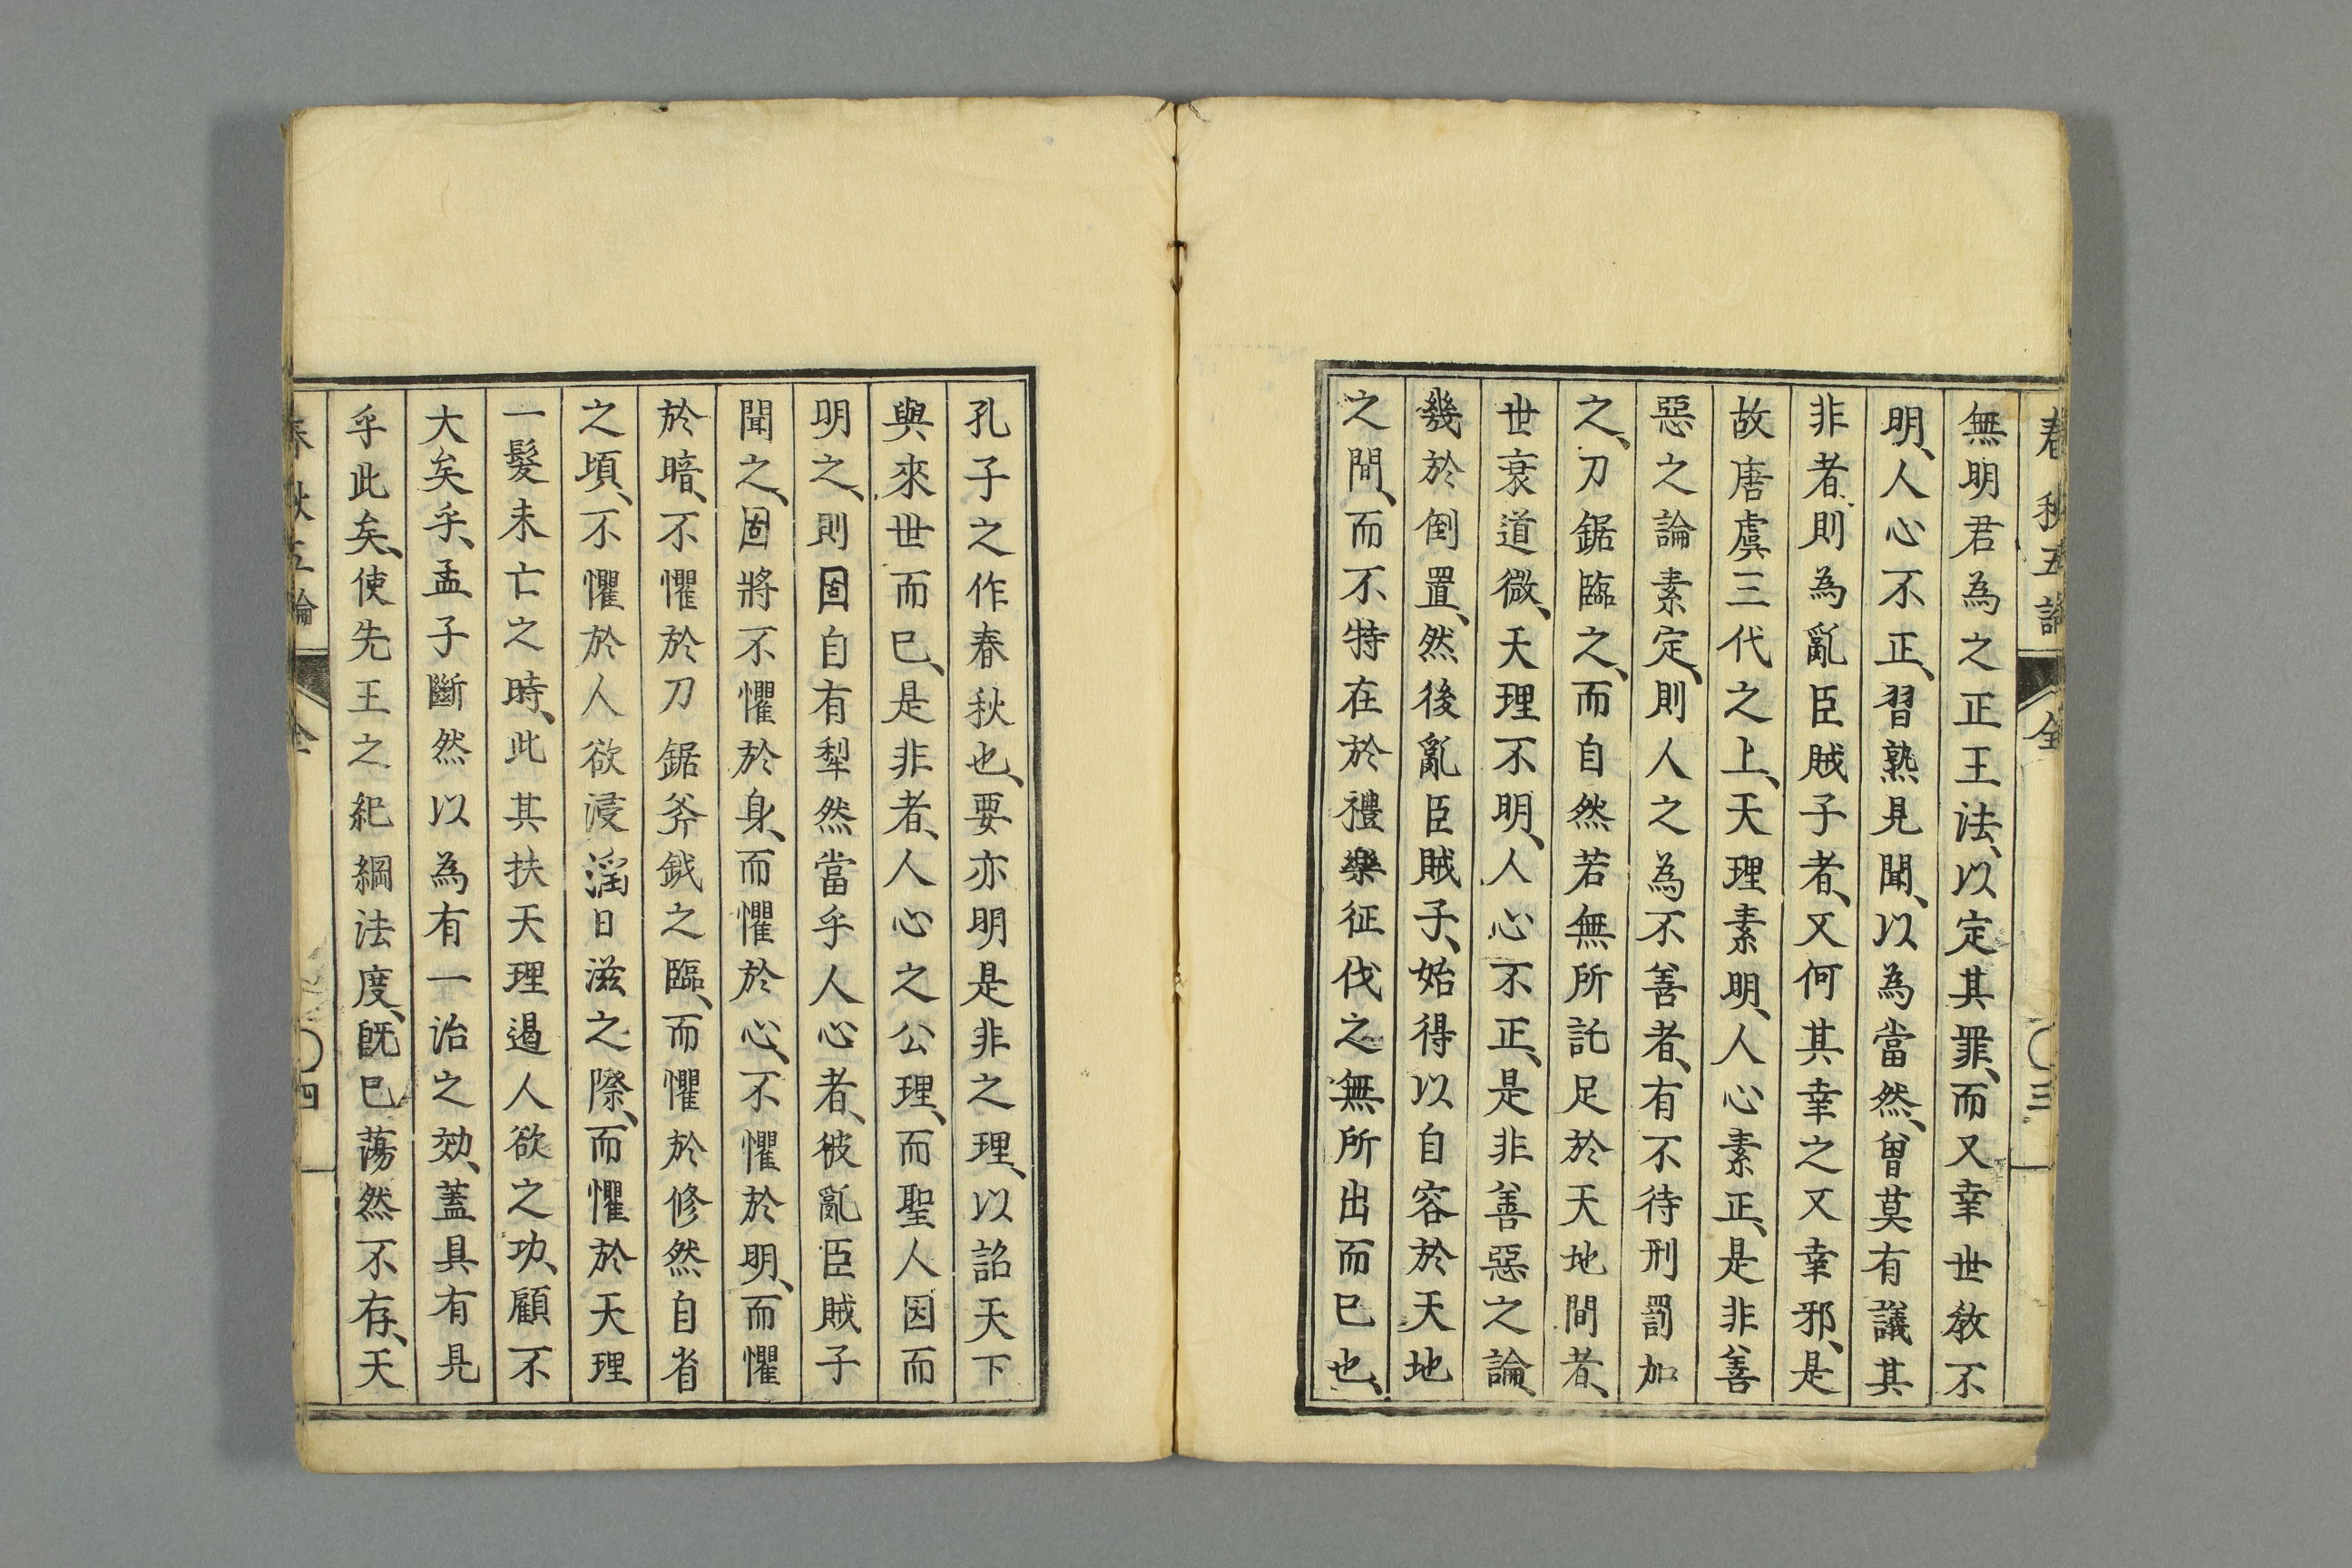 春秋五論 全 〇三
無明君為之正王法、以定其罪、而又幸世敎不
明、人心不正、習熟見聞、以為當然、曾莫有議其
非者、則為亂臣賊子者、又何其幸之又幸邪、是
故唐虞三代之上、天理素明、人心素正、是非善
惡之論素定、則人之為不善者、有不待刑罰加
之、刀鋸臨之、而自然若無所託足於天地間者、
世衰道微、天理不明、人心不正、是非善惡之論、
幾於倒置、然後亂臣賊子、始得以自容於天地
之間、而不特在於禮樂征伐之無所出而已也、
孔子之作春秋也、要亦明是非之理、以詔天下
與來世而已、是非者、人心之公理、而聖人因而
明之、則固自有犁然當乎人心者、彼亂臣賊子
聞之、固將不懼於身、而懼於心、不懼於明、而懼
於暗、不懼於刀鋸斧鉞之臨、而懼於修然自省
之頃、不懼於人欲浸淫日滋之際、而懼於天理
一髮未亡之時、此其扶天理遏人欲之功、顧不
大矣乎、孟子斷然以為有一治之効、蓋具有見
乎此矣、使先王之紀綱法度、旣已蕩然不存、天
春秋五論 全 〇四